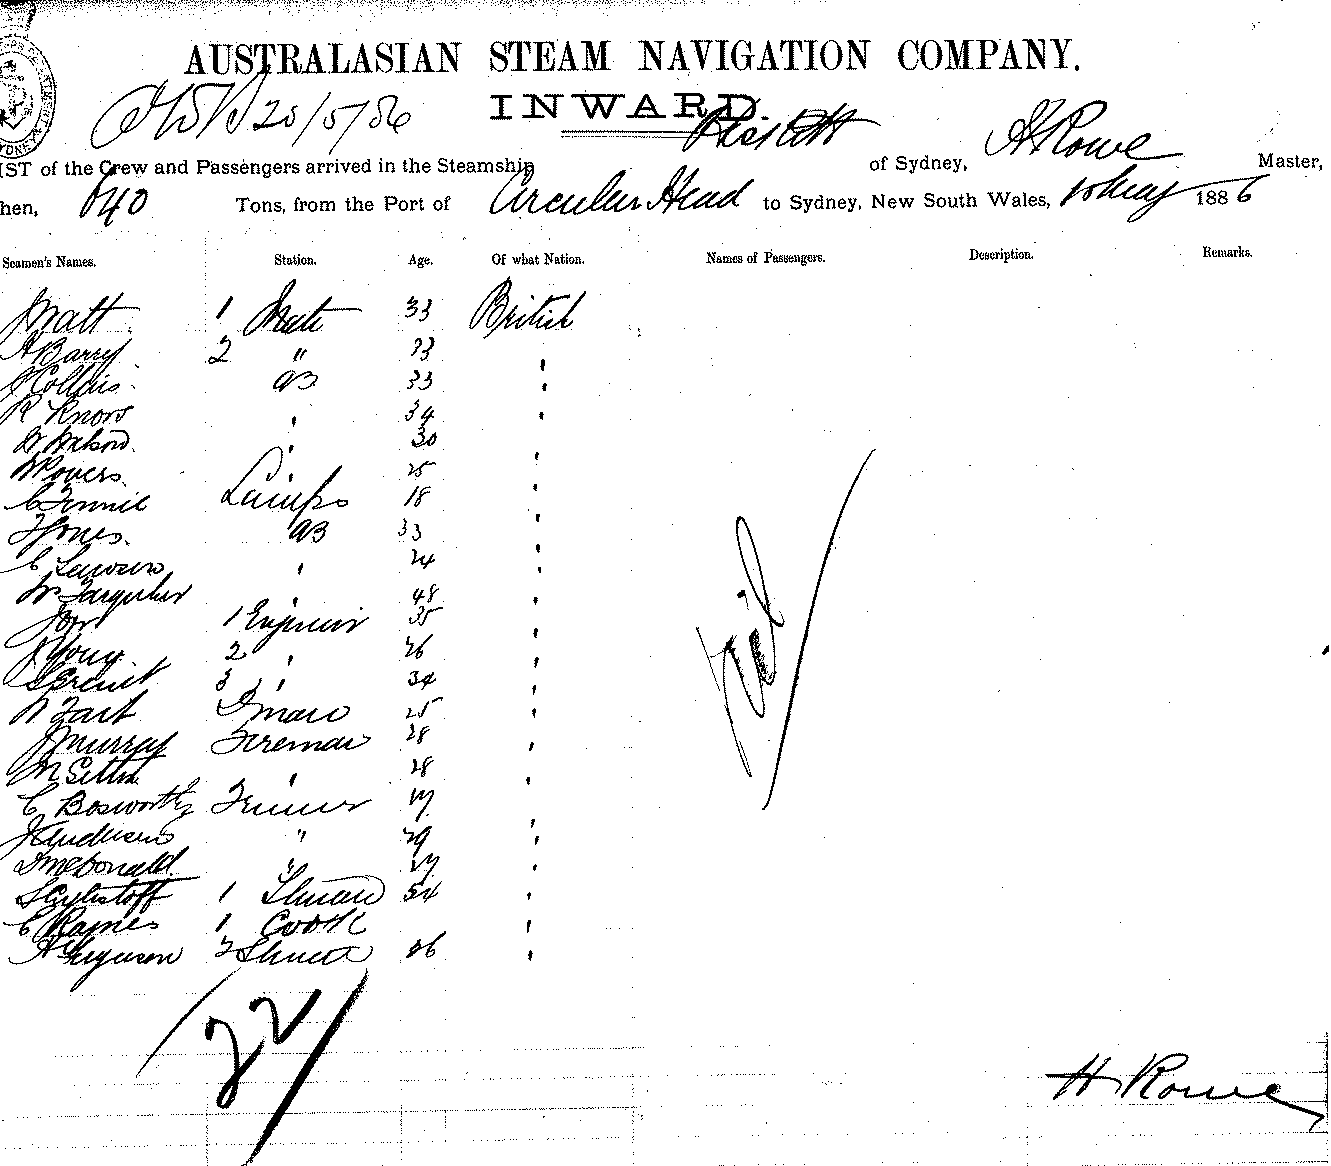 AUSTRALASIAN STEAM NAVIGATION COMPANY.
25/5/86 INWARD.
IST of the Crew and Passengers arrived in the Steamship of Sydney, H Rowe Master,
hen, 640 Tons, from the Port of Circular Head to Sydney, New South Wales, 188 6
Seamen's Names. Station. Age. Of what Nation. Names of Passengers. Description. Remarks.
J Watt 1 Mate 33 British
A Barry 2 " 33 "
J Collins AB 33 "
R Knors " 34 "
W Watson " 30
W Rovers " 25 "
C Finnie Lamps 18 "
T Jones AB 33 "
C Lawson " 24 "
Wm Farquhar " 48 "
J Orr 1 Engineer 35 "
J Young 2 " 26 "
3 " 34 "
W Tart Dman 25 "
J Murray Fireman 28 "
" 28 "
C Bosworth Trimmer 27 "
J Anderson " 29 "
D McDonald " 27 "
1 54 "
C Raines 1 Cook "
A Ferguson 2 26 "
Nil
22
H Rowe